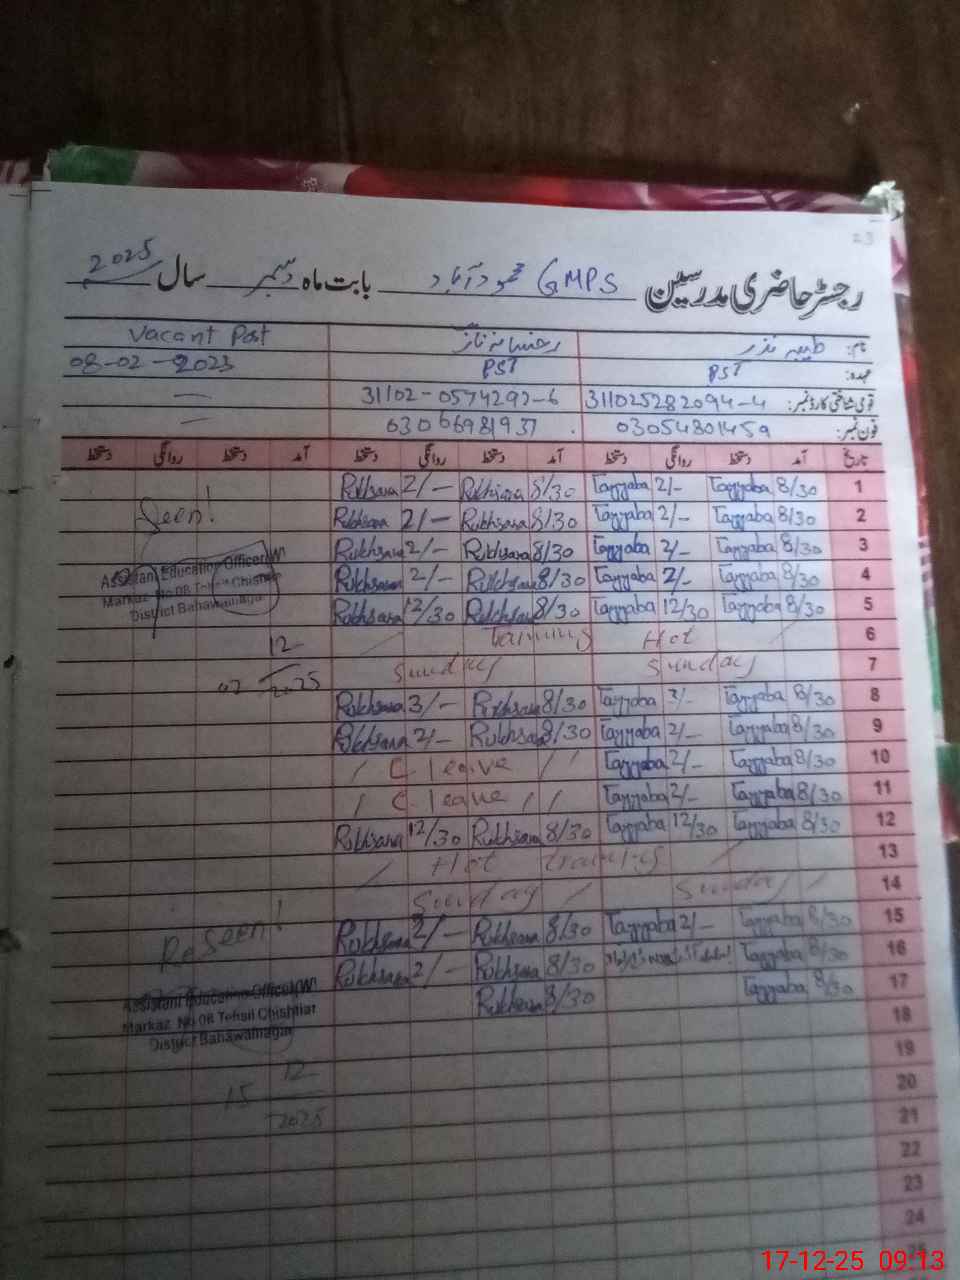 23
رجسٹر حاضری مدرسین GMPS محمود آباد بابت ماہ دسمبر سال 2025
نام: طیبہ نذر رخسانہ ناز Vacant Post
عہدہ: PST PST 08-02-2023
قومی شناختی کارڈ نمبر: 311025282094-4 31102-0574292-6 —
فون نمبر: 03054801459 03066981937 —
تاریخ آمد دستخط روانگی دستخط آمد دستخط روانگی دستخط آمد دستخط روانگی دستخط
1 8/30 Tayyaba 2/- Tayyaba 8/30 Rukhsana 2/- Rukhsana
2 8/30 Tayyaba 2/- Tayyaba 8/30 Rukhsana 2/- Rukhsana Seen!
3 8/30 Tayyaba 2/- Tayyaba 8/30 Rukhsana 2/- Rukhsana
4 8/30 Tayyaba 2/- Tayyaba 8/30 Rukhsana 2/- Rukhsana
5 8/30 Tayyaba 12/30 Tayyaba 8/30 Rukhsana 12/30 Rukhsana
Assistant Education Officer(W)
Markaz No 08 Tehsil Chishtian
District Bahawalnagar
6 Hot Training
7 Sunday Sunday
02 12 2025
8 8/30 Tayyaba 3/- Tayyaba 8/30 Rukhsana 3/- Rukhsana
9 8/30 Tayyaba 2/- Tayyaba 8/30 Rukhsana 2/- Rukhsana
10 8/30 Tayyaba 2/- Tayyaba / / C. leave /
11 8/30 Tayyaba 2/- Tayyaba / / C. leave /
12 8/30 Tayyaba 12/30 Tayyaba 8/30 Rukhsana 12/30 Rukhsana
13 Hot training
14 Sunday Sunday
15 8/30 Tayyaba 2/- Tayyaba 8/30 Rukhsana 2/- Rukhsana
ReSeen!
16 8/30 Tayyaba 8/30 Rukhsana 2/- Rukhsana
17 8/30 Tayyaba 8/30 Rukhsana
Assistant Education Officer(W)
Markaz No 08 Tehsil Chishtian
District Bahawalnagar
18
19
15 12 2025
20
21
22
23
24
25
17-12-25 09:13